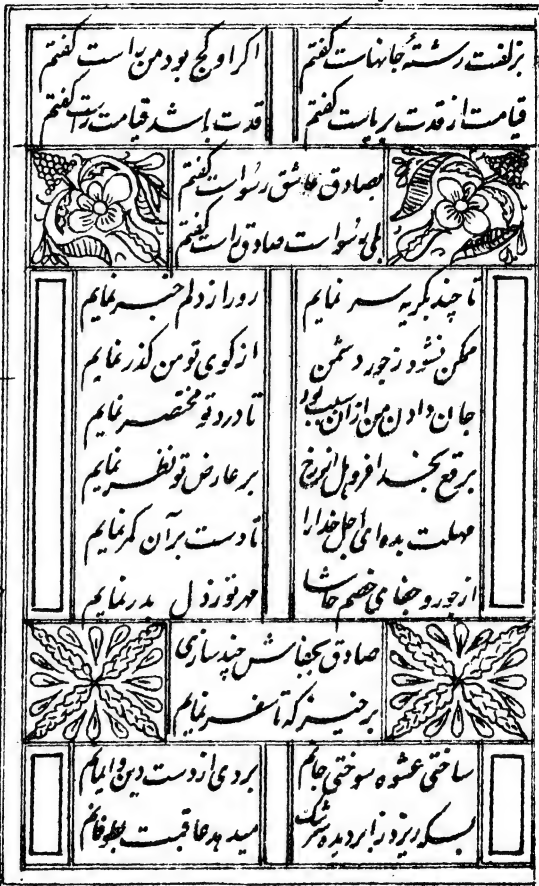 بزلفت رشتهٔ جانهاست گفتم اگر او کج بود من راست گفتم
قیامت از قدت برپاست گفتم قدت باشد قیامت راست گفتم
بصادق عاشق رسواست گفتم
بلی رسواست صادق راست گفتم
تا چند بگریه سر نمایم روز از دلم خبر نمایم
ممکن نشود ز جور دشمن از کوی تو من گذر نمایم
جان دادن من از آن سبب بود تا درد تو مختصر نمایم
برقع بخدا فروهل از رخ بر عارض تو نظر نمایم
مهلت بده ای اجل خدا را تا دست بر آن کمر نمایم
از جور و جفای خصم حاشا مهر تو ز دل بدر نمایم
صادق بجفاش چند سازی
برخیز که تا سفر نمایم
ساختی عشوه سوختی جانم بردی از دست دین و ایمانم
بسکه ریزد ز ابر دیده سرشک میدهد عاقبت بطوفانم